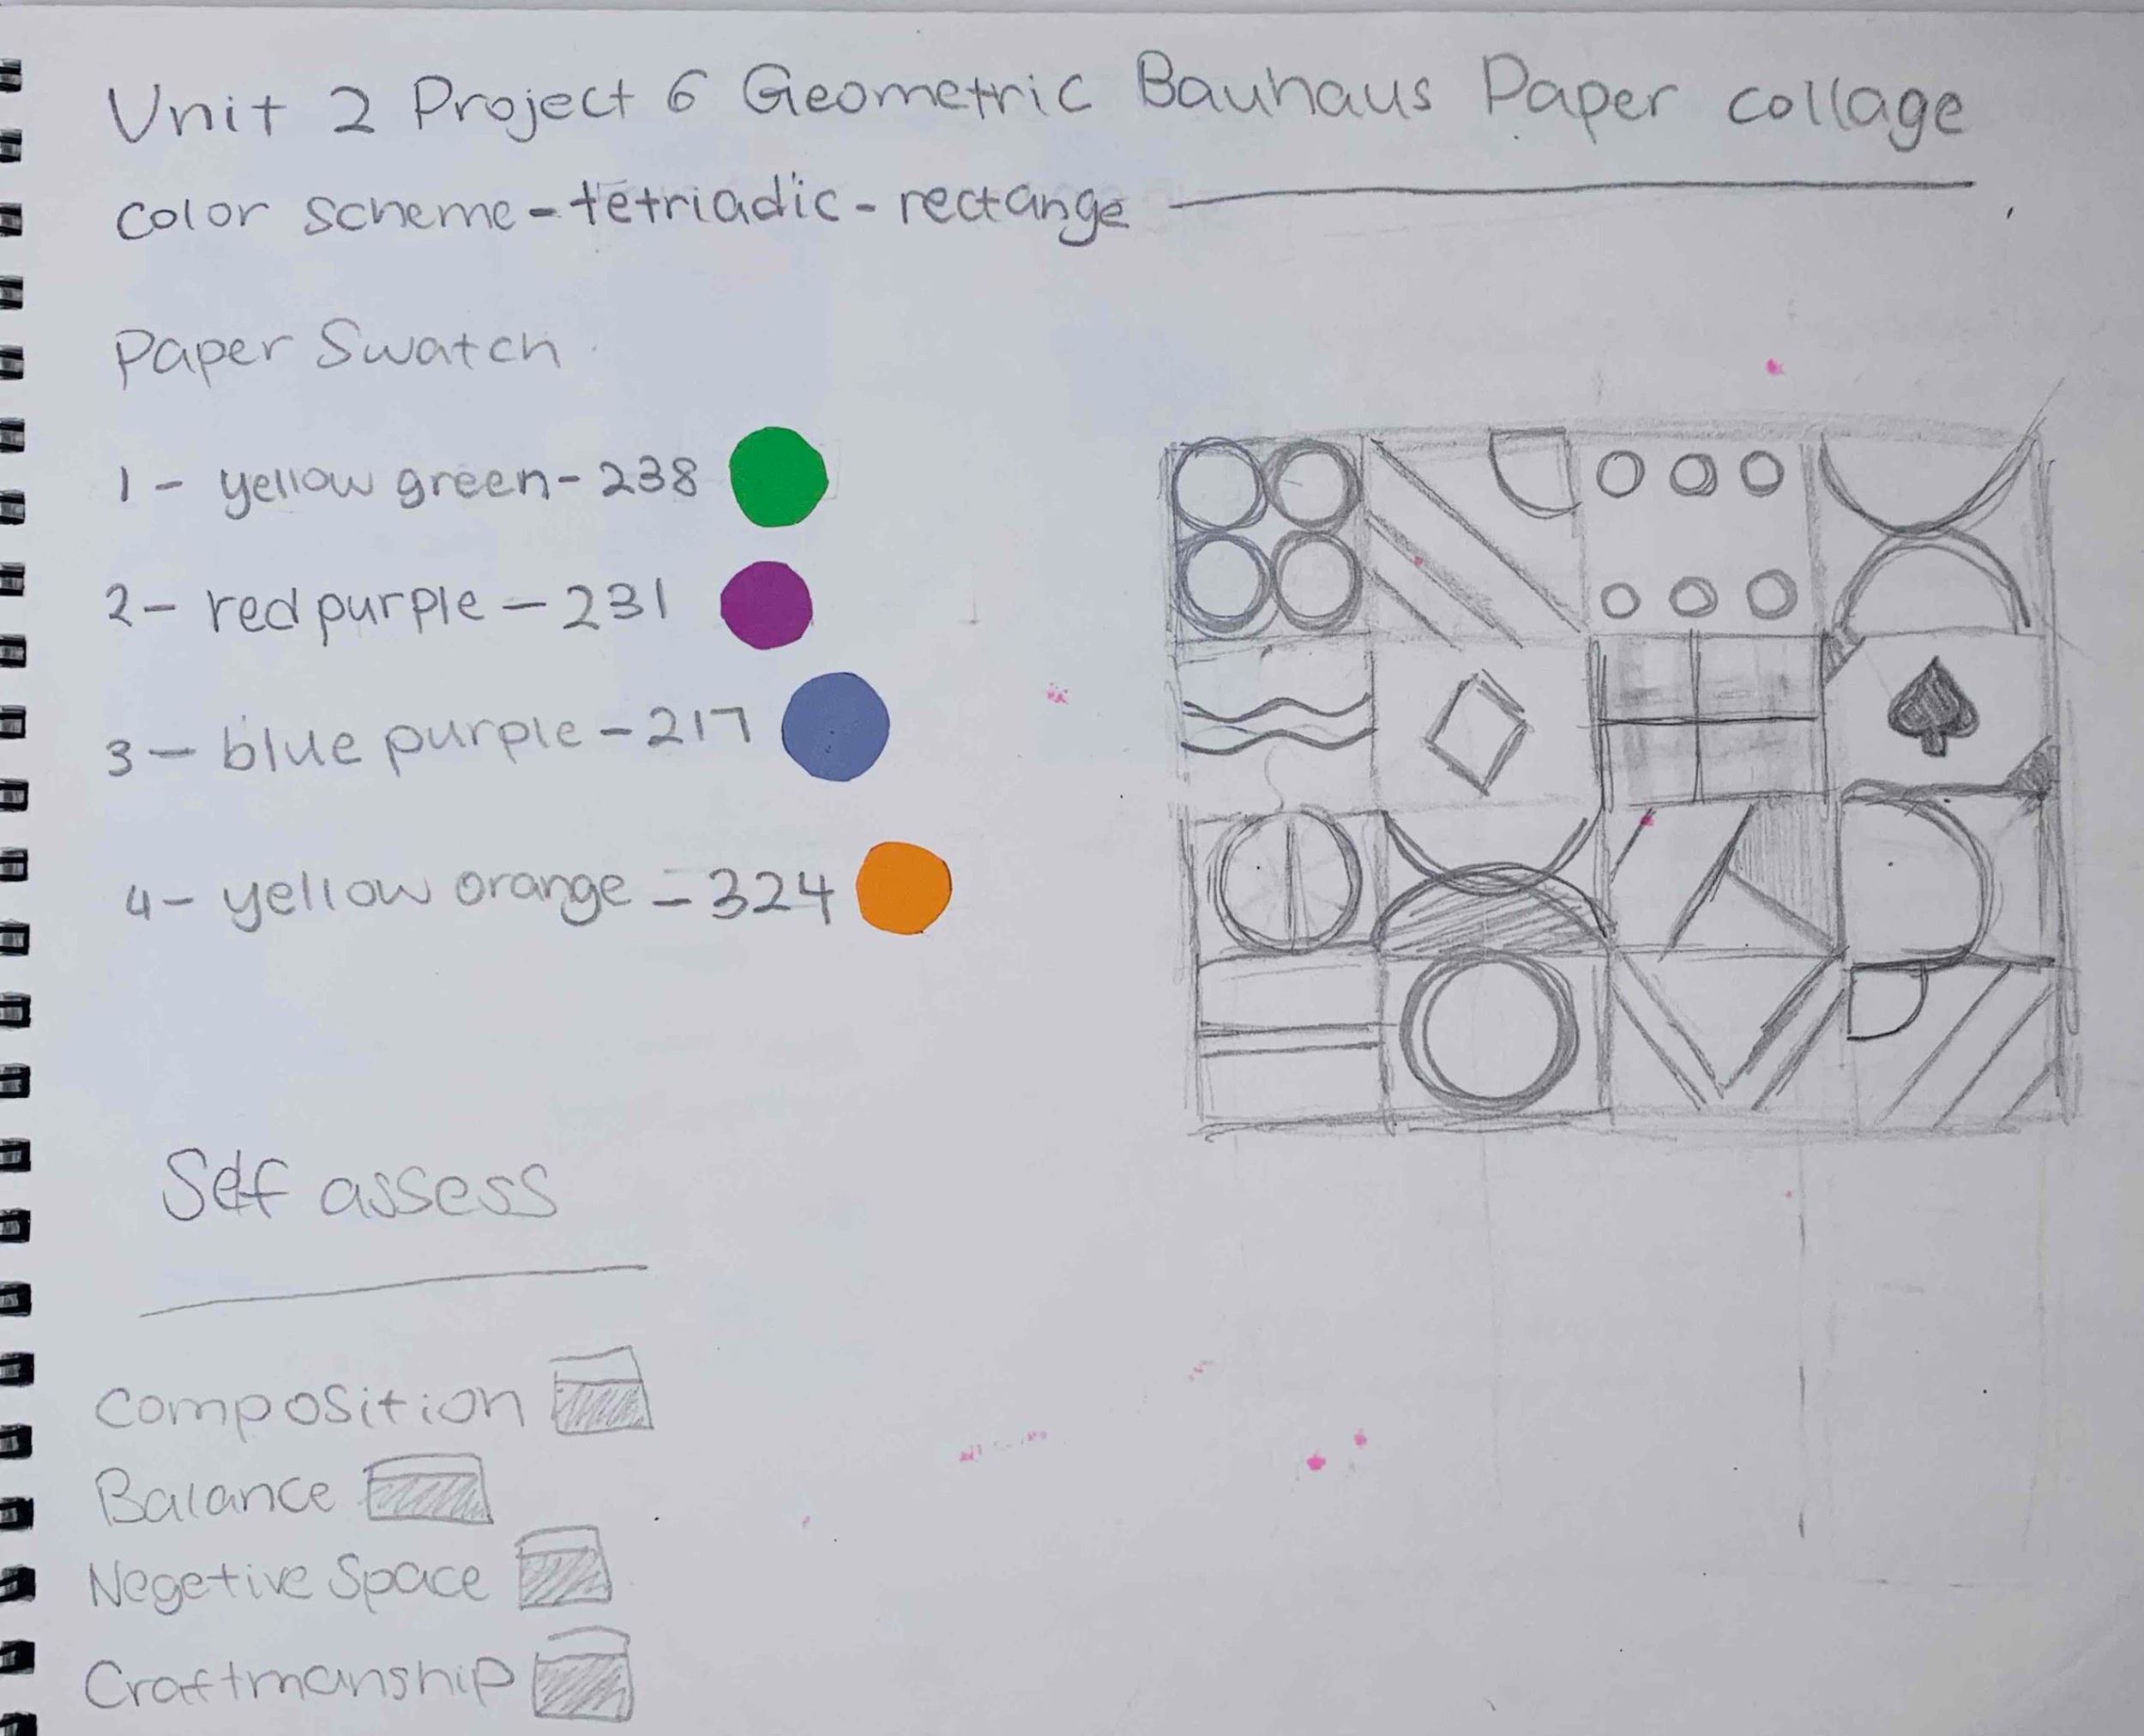 Unit 2 Project 6 Geometric Bauhaus Paper collage
color scheme - tetriadic - rectange
Paper Swatch
1 - yellow green - 238
2 - red purple - 231
3 - blue purple - 217
4 - yellow orange - 324
Self assess
Composition
Balance
Negetive Space
Craftmanship